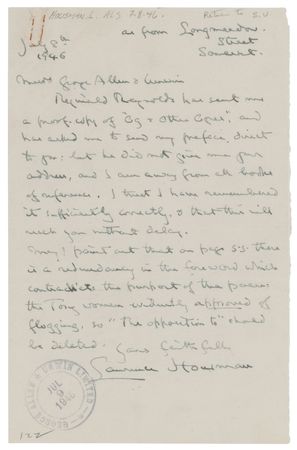 HOUSMAN.L. ALS 7-8-46. Return to S.U.
as from Longmeadow.
Street
Somerset.
July 8th
1946
Messrs George Allen & Unwin
Reginald Reynolds has sent me
a proof copy of "Og & Other Ogres", and
has asked me to send my preface direct
to you: but he did not give me your
address, and I am away from all books
of reference. I trust I have remembered
it sufficiently correctly, & that this will
reach you without delay.
May I point out that on page 53. there
is a redundancy in the foreword which
contradicts the purport of the poem:
the Tory women evidently approved of
flogging, so "The opposition to" should
be deleted. Yours faithfully
Laurence Housman
GEORGE ALLEN & UNWIN LIMITED
JUL
9
1946
122